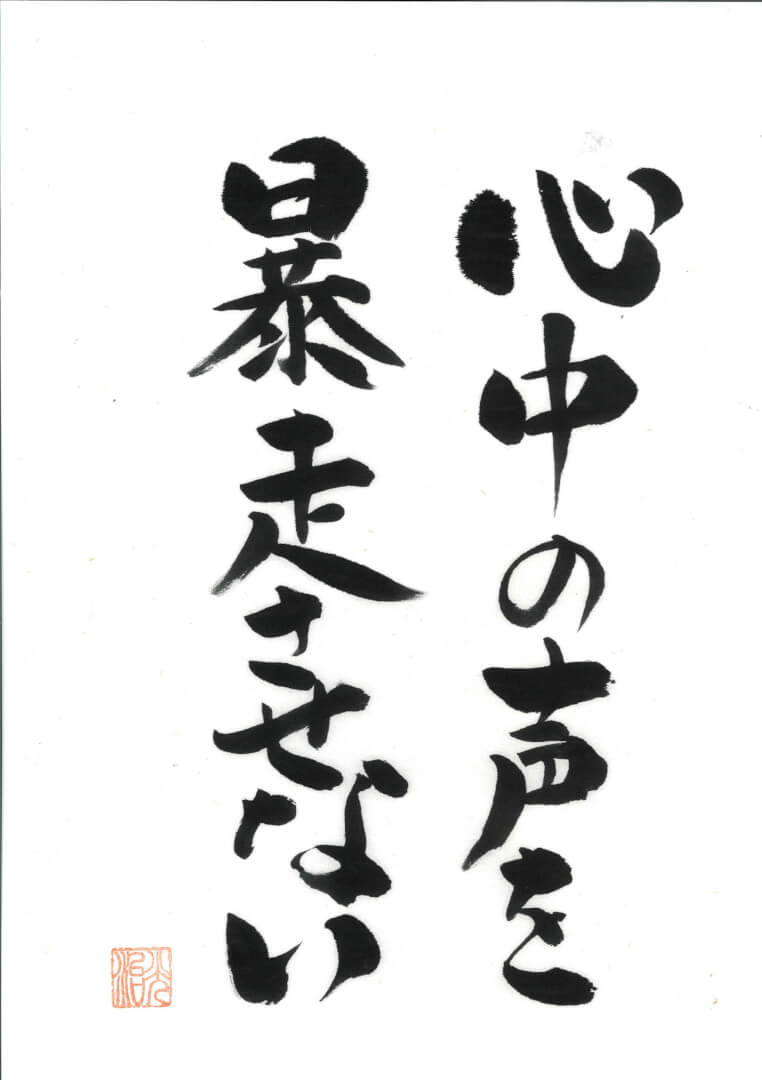 心中の声を
暴走させない